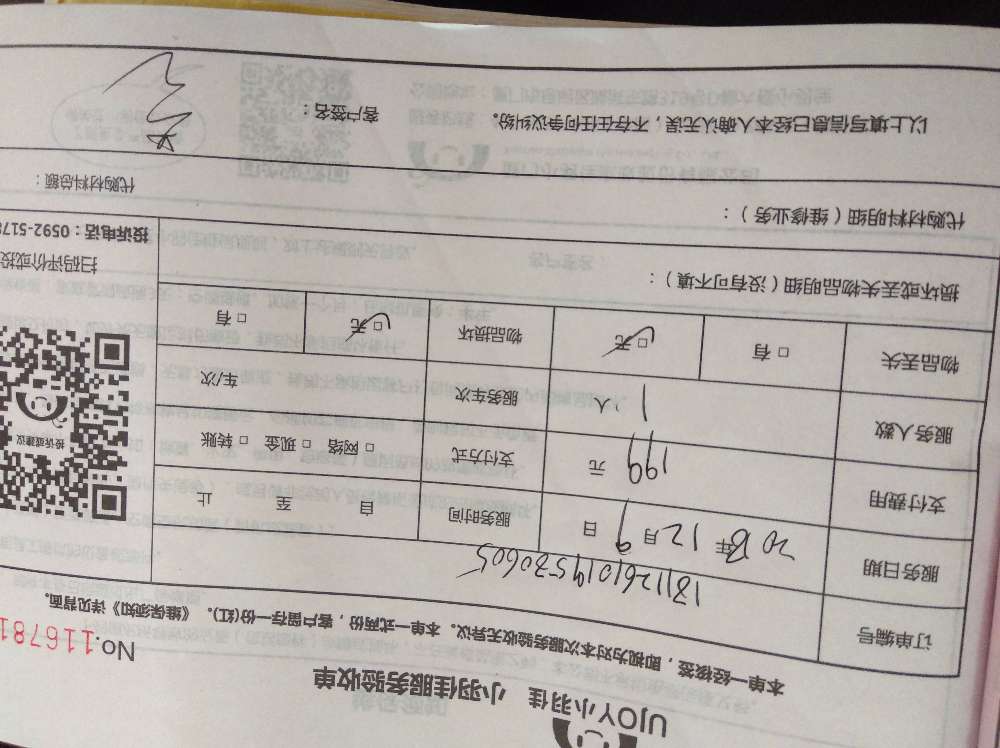 UJOY小羽佳 小羽佳服务验收单
No.116781
本单一经核签，即视为对本次服务验收无异议。本单一式两份，客户留存一份(红)。《维保须知》详见背面。
订单编号 181126101945730605
服务日期 2018年12月9日 服务时间 自 至 止
支付费用 199 元 支付方式 □ 网络 □ 现金 □ 转账
服务人数 1 人 服务车次 车/次
物品丢失 □ 有 □ 无 物品损坏 □ 无 □ 有
投诉或建议
扫码评价或投
投诉电话：0592-5178
损坏或丢失物品明细（没有可不填）：
代购材料明细（维修业务）： 代购材料总额：
以上填写信息已经本人确认无误，不存在任何争议纠纷。 客户签名：